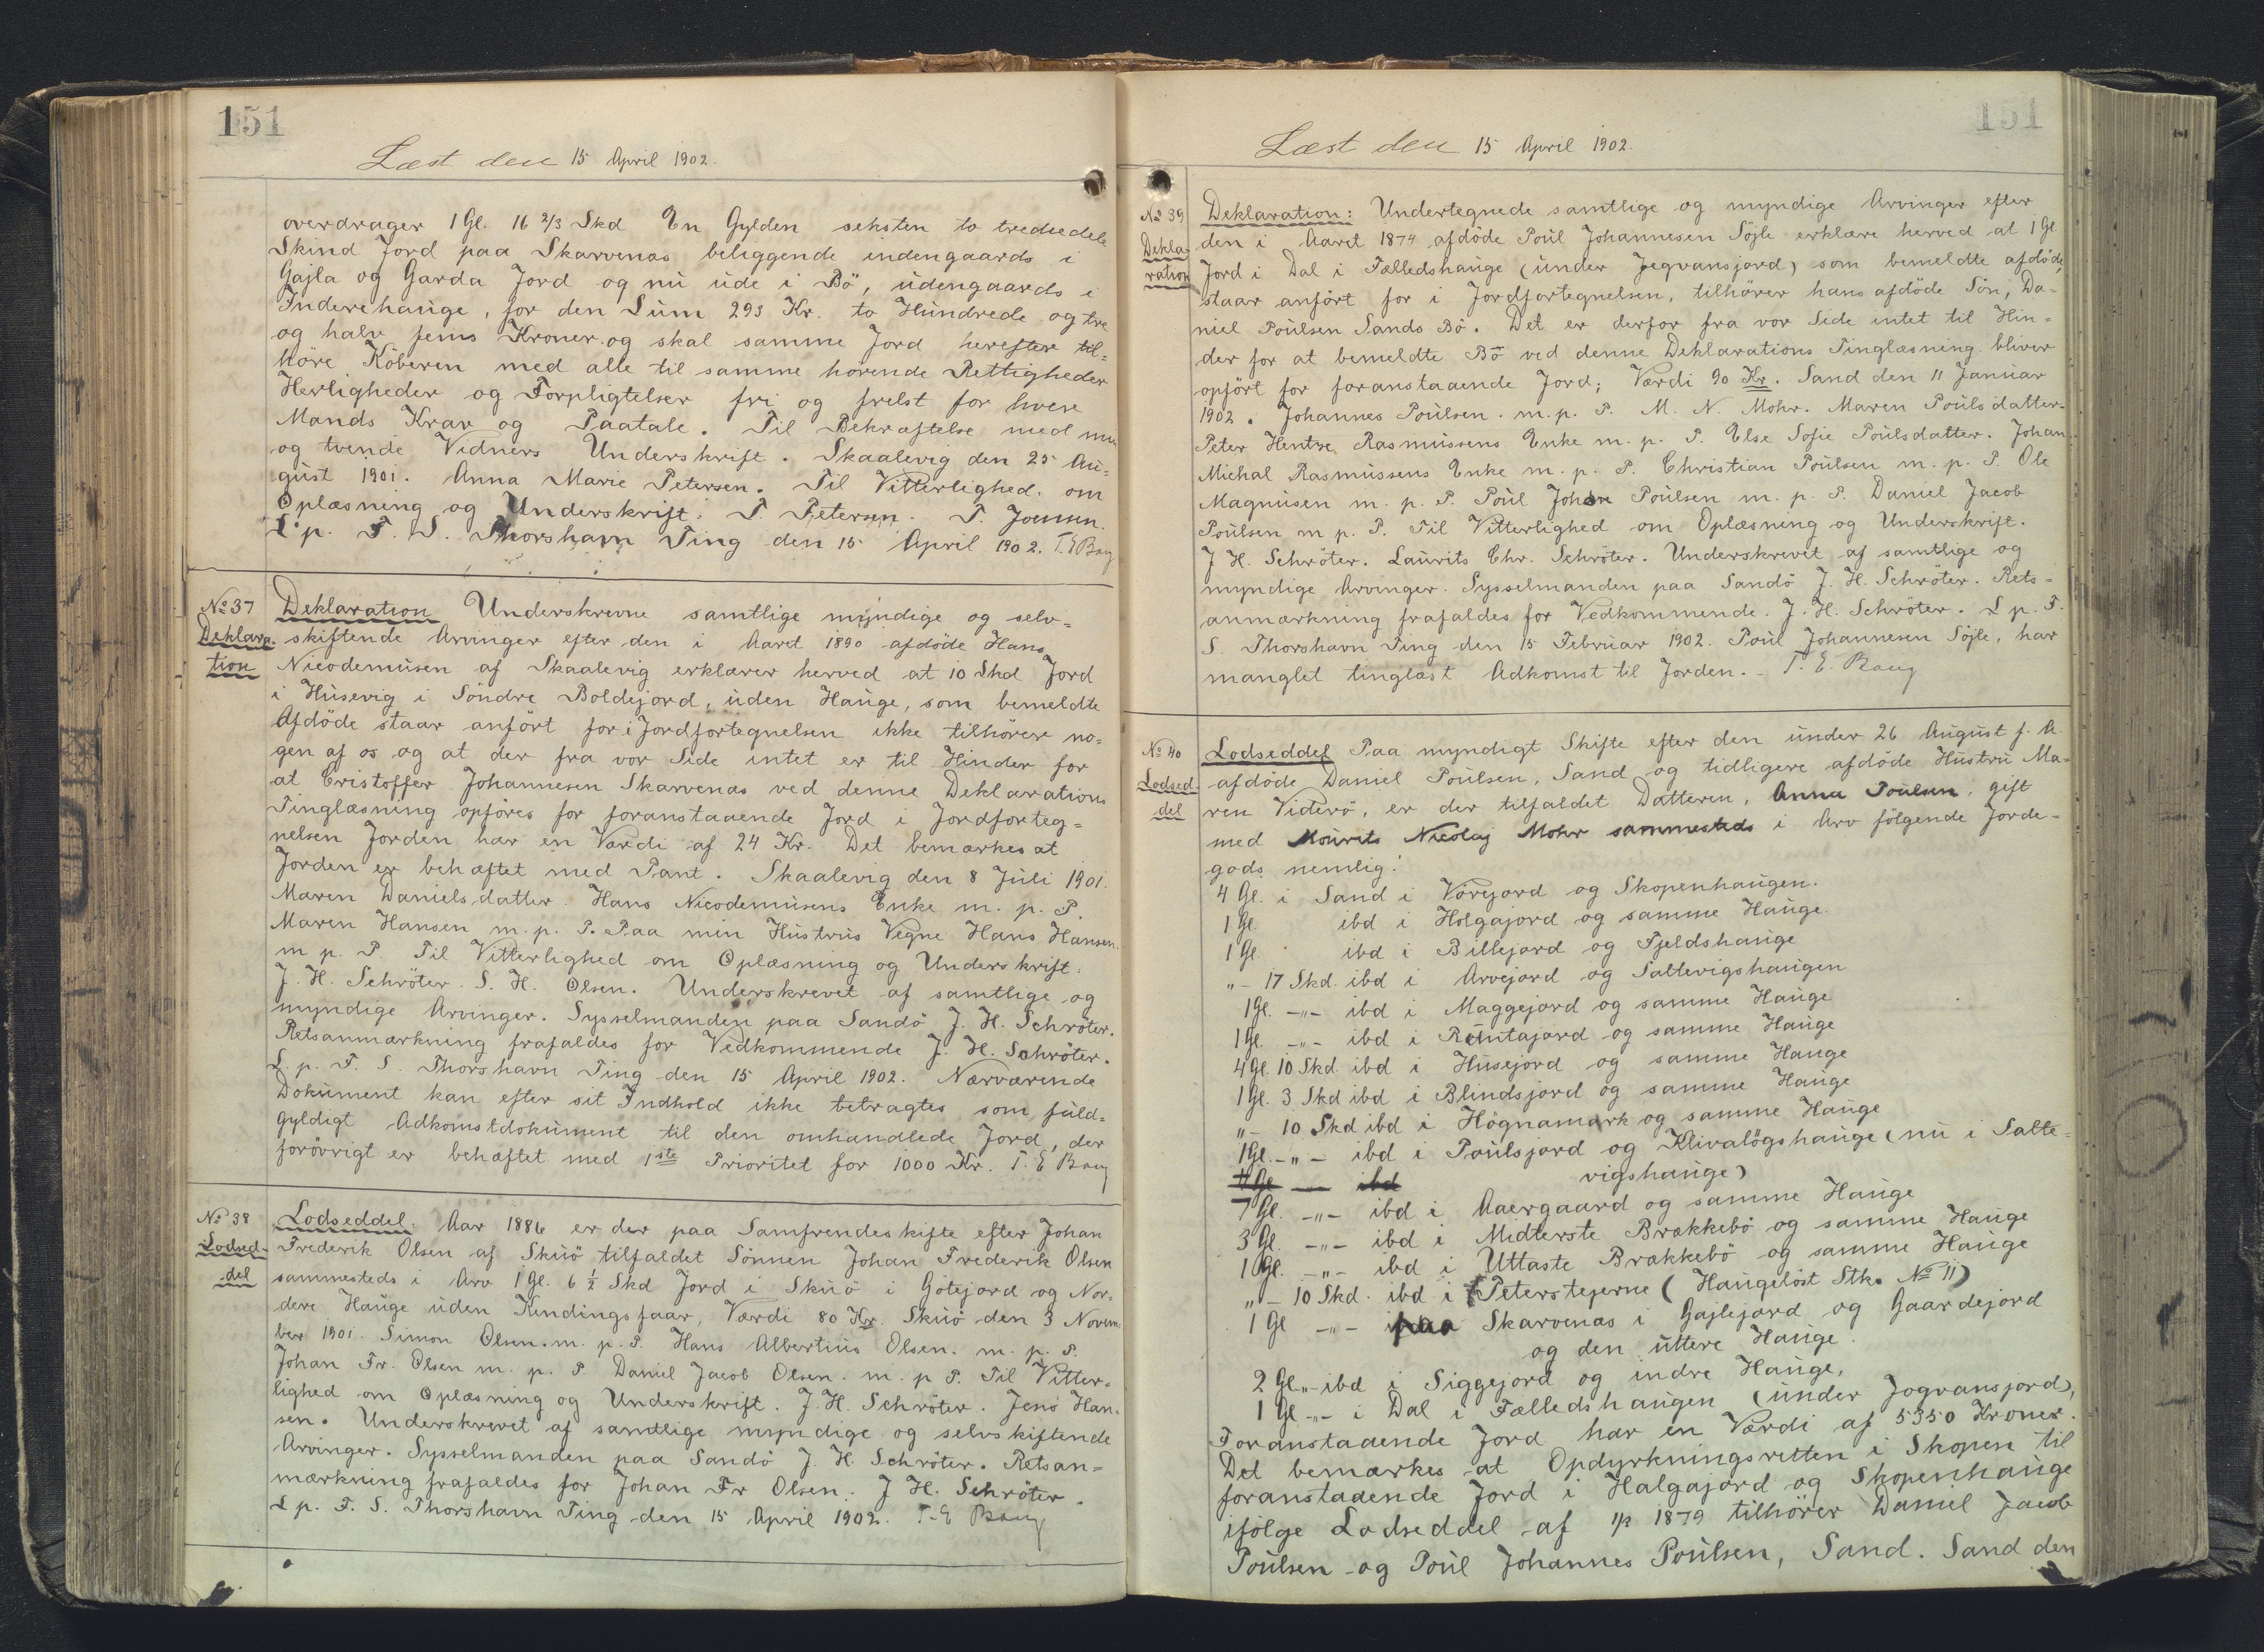 151
Læst den 15 April 1902.
overdrager 1 Gl. 16 2/3 Skd En Gylden seksten to trediedele
Skind Jord paa Skarvenæs beliggende indengaards i
Gajla og Garda Jord og nu ude i Bö, udengaards i
Inderehauge, for den Sum 293 Kr. to Hundrede og tre
og halv fems Kroner og skal samme Jord herefter til=
höre Köberen med alle til samme hörende Rettigheder
Herligheder og Forpligtelser fri og frelst for hver
Mands Krav og Paatale. Til Bekræftelse med min
og tvende Vidners Underskrift. Skaalevig den 25 Au=
gust 1901. Anna Marie Petersen. Til Vitterlighed om
Oplæsning og Underskrift: T. Petersen. T. Joensen.
L. p. F. S. Thorshavn Ting den 15 April 1902. T. E. Bay
№ 37
Deklara-
tion
Deklaration Underskrevne samtlige myndige og selv=
skiftende Arvinger efter den i Aaret 1890 afdöde Hans
Nicodemusen af Skaalevig erklærer herved at 10 Skd Jord
i Husevig i Söndre Boldejord, uden Hauge, som bemeldte
Afdöde staar anfört for i Jordfortegnelsen ikke tilhörer no=
gen af os og at der fra vor Side intet er til Hinder for
at Cristoffer Johannesen Skarvenæs ved denne Deklarations
Tinglæsning opföres for foranstaaende Jord i Jordforteg=
nelsen Jorden har en Værdi af 24 Kr. Det bemærkes at
Jorden er behæftet med Pant. Skaalevig den 8 Juli 1901.
Maren Danielsdatter. Hans Nicodemusens Enke m. p. P.
Maren Hansen m. p. P. Paa min Hustrus Vegne Hans Hansen.
m p. P. Til Vitterlighed om Oplæsning og Underskrift:
J. H. Schröter. S. H. Olsen. Underskrevet af samtlige og
myndige Arvinger. Sysselmanden paa Sandö J. H. Schröter.
Retsanmærkning frafaldes for Vedkommende J. H. Schröter.
L. p. F. S. Thorshavn Ting den 15 April 1902. Nærværende
Dokument kan efter sit Indhold ikke betragtes som fuld=
gyldigt Adkomstdokument til den omhandlede Jord, der
forövrigt er behæftet med 1ste Prioritet for 1000 Kr. T. E. Bay
№ 38
Lodsed-
del
Lodseddel. Aar 1886 er der paa Samfrendeskifte efter Johan
Frederik Olsen af Skuö tilfaldet Sönnen Johan Frederik Olsen
sammesteds i Arv 1 Gl. 6 1/2 Skd Jord i Skuö i Götejord og Nor=
dere Hauge uden Kendingsfaar, Værdi 80 Kr. Skuö den 3 Novem=
ber 1901. Simon Olsen. m. p. P. Hans Albertius Olsen. m. p. P.
Johan Fr. Olsen m. p. P. Daniel Jacob Olsen. m. p P. Til Vitter=
lighed om Oplæsning og Underskrift. J. H. Schröter. Jens Han=
sen. Underskrevet af samtlige myndige og selvskiftende
Arvinger. Sysselmanden paa Sandö J. H. Schröter. Retsan=
mærkning frafaldes for Johan Fr Olsen. J H. Schröter.
L p. F. S. Thorshavn Ting den 15 April 1902. T. E Bay
151
Læst den 15 April 1902.
№ 39
Dekla-
ration
Deklaration: Undertegnede samtlige og myndige Arvinger efter
den i Aaret 1874 afdöde Poul Johannesen Söjle erklære herved at 1 Gl
Jord i Dal i Fælledshauge (under Jegvansjord) som bemeldte afdöde,
staar anfört for i Jordfortegnelsen, tilhörer hans afdöde Sön, Da-
niel Poulsen Sands Bö. Det er derfor fra vor Side intet til Hin=
der for at bemeldte Bö ved denne Deklarations Tinglæsning bliver
opfört for foranstaaende Jord; Værdi 90 Kr. Sand den 11 Januar
1902. Johannes Poulsen. m. p. P. M. N. Mohr. Maren Poulsdatter.
Peter Hentze Rasmussens Enke m. p. P. Else Sofie Poulsdatter. Johan
Michal Rasmussens Enke m. p. P. Christian Poulsen m. p. P. Ole
Magnusen m. p. P. Poul Johan Poulsen m. p. P. Daniel Jacob
Poulsen m p. P. Til Vitterlighed om Oplæsning og Underskrift.
J H. Schröter. Laurits Chr. Schröter. Underskrevet af samtlige og
myndige Arvinger. Sysselmanden paa Sandö J. H. Schröter. Rets=
anmærkning frafaldes for Vedkommende. J. H. Schröter. L p. F.
S. Thorshavn Ting den 15 Februar 1902. Poul Johannesen Söjle, har
manglet tinglæst Adkomst til Jorden. T. E. Bay
№ 40
Lodsed-
del
Lodseddel Paa myndigt Skifte efter den under 26 August f. A.
afdöde Daniel Poulsen, Sand og tidligere afdöde Hustru Ma=
ren Viderö, er der tilfaldet Datteren, Anna Poulsen, gift
med Mourits Nicolaj Mohr sammesteds i Arv fölgende Jorde-
gods nemlig:
4 Gl. i Sand i Vörejord og Skopenhaugen.
1 Gl. ibd i Holgajord og samme Hauge.
1 Gl. ibd i Billejord og Fjeldshauge
"- 17 Skd. ibd i Arvejord og Saltevigshaugen
1 Gl. -"- ibd i Maggejord og samme Hauge
1 Gl. -"- ibd i Runtajord og samme Hauge
4 Gl. 10 Skd. ibd i Husejord og samme Hauge
1 Gl. 3 Skd ibd i Blindsjord og samme Hauge
"- 10 Skd ibd i Högnamark og samme Hauge
1 Gl. -"- ibd i Poulsjord og Klivalögshauge (nu i Salte=
vigshauge)
7 Gl. -"- ibd i Aaergaard og samme Hauge
3 Gl. -"- ibd i Midterste Brækkebö og samme Hauge
1 Gl. -"- ibd i Uttaste Brækkebö og samme Hauge
"- 10 Skd. ibd i Peterstejerne (Haugelöst Stk. № 11)
1 Gl -"- paa Skarvenæs i Gajlejord og Gaardejord
og den uttere Hauge.
2 Gl "- ibd i Siggejord og indre Hauge,
1 Gl -"- i Dal i Fælledshaugen (under Jogvansjord),
Foranstaaende Jord har en Værdi af 5350 Kroner.
Det bemærkes at Opdyrkningsretten i Skopen til
foranstaaende Jord i Halgajord og Skopenhauge
ifölge Lodseddel af 1879 tilhörer Daniel Jacob
Poulsen og Poul Johannes Poulsen, Sand. Sand den